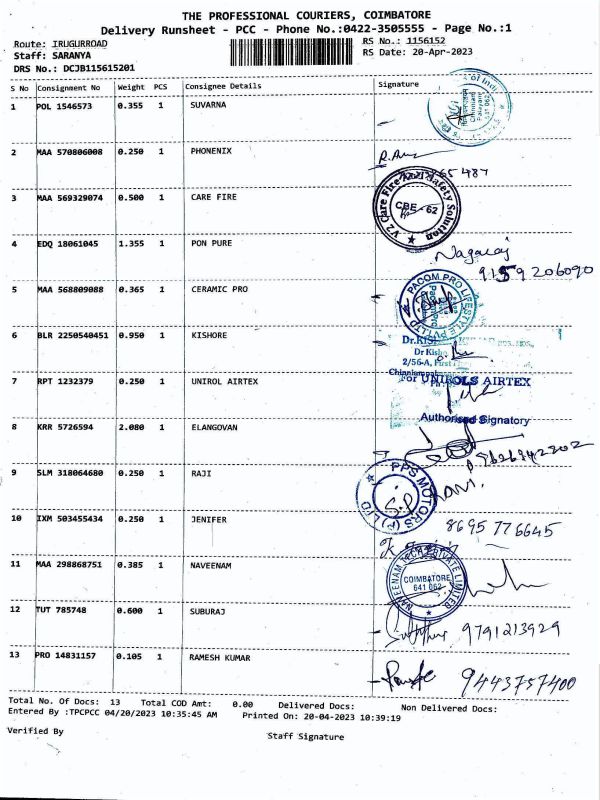 THE PROFESSIONAL COURIERS, COIMBATORE
Delivery Runsheet - PCC - Phone No.:0422-3505555 - Page No.:1
Route: IRUGURROAD
Staff: SARANYA
DRS No.: DCJB115615201
RS No.: 1156152
RS Date: 20-Apr-2023
S No Consignment No Weight PCS Consignee Details Signature
1 POL 1546573 0.355 1 SUVARNA
2 MAA 570806008 0.250 1 PHONENIX
3 MAA 569329074 0.500 1 CARE FIRE
V2 Care Fire And Safety Solution
CBE - 62
4 EDQ 18061045 1.355 1 PON PURE
Nagaraj
9159206090
5 MAA 568809088 0.365 1 CERAMIC PRO
PACOM PRO LIFESTYLE PVT LTD
6 BLR 2250540451 0.950 1 KISHORE
2/56-A, First
7 RPT 1232379 0.250 1 UNIROL AIRTEX
For UNIROLS AIRTEX
Authorised Signatory
8 KRR 5726594 2.080 1 ELANGOVAN
9 SLM 318064680 0.250 1 RAJI
PPS MOTORS (P) LTD
10 IXM 503455434 0.250 1 JENIFER
8695776645
11 MAA 298868751 0.385 1 NAVEENAM
COIMBATORE
641 062
12 TUT 785748 0.600 1 SUBURAJ
9791213929
13 PRO 14831157 0.105 1 RAMESH KUMAR
9443757400
Total No. Of Docs: 13 Total COD Amt: 0.00 Delivered Docs: Non Delivered Docs:
Entered By :TPCPCC 04/20/2023 10:35:45 AM Printed On: 20-04-2023 10:39:19
Verified By
Staff Signature